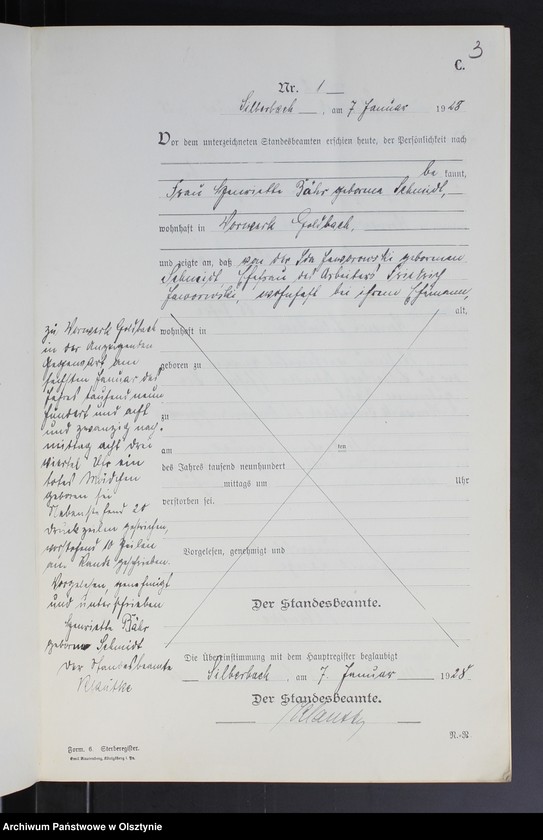 C. 3
Nr. 1
Silberbach, am 7 Januar 1928
Vor dem unterzeichneten Standesbeamten erschien heute, der Persönlichkeit nach
be kannt,
Frau Henriette Bähr geborene Schmidt,
wohnhaft in Vorwerk Goldbach,
und zeigte an, daß von der Ida Jaworowski geborenen
Schmidt, Ehefrau des Arbeiters Friedrich
Jaworowski, wohnhaft bei ihrem Ehemann,
alt,
zu Vorwerk Goldbach
in der Anzeigenden
Gegenwart am
sechsten Januar des
Jahres tausend neun
hundert und acht
und zwanzig nach-
mittag acht drei
viertel Uhr ein
totes Mädchen
geboren sei
Nebenstehend 20
Druckzeilen gestrichen,
vorstehend 10 Zeilen
am Rande geschrieben.
Vorgelesen, genehmigt
und unterschrieben
Henriette Bähr
geborene Schmidt
Der Standesbeamte
Klautke
wohnhaft in
geboren zu
zu
am ten
des Jahres tausend neunhundert
mittags um Uhr
verstorben sei.
Vorgelesen, genehmigt und
Der Standesbeamte.
Die Übereinstimmung mit dem Hauptregister beglaubigt
Silberbach, am 7. Januar 1928
Der Standesbeamte.
Klautke
Form. 6. Sterberegister.
R.-R
Archiwum Państwowe w Olsztynie